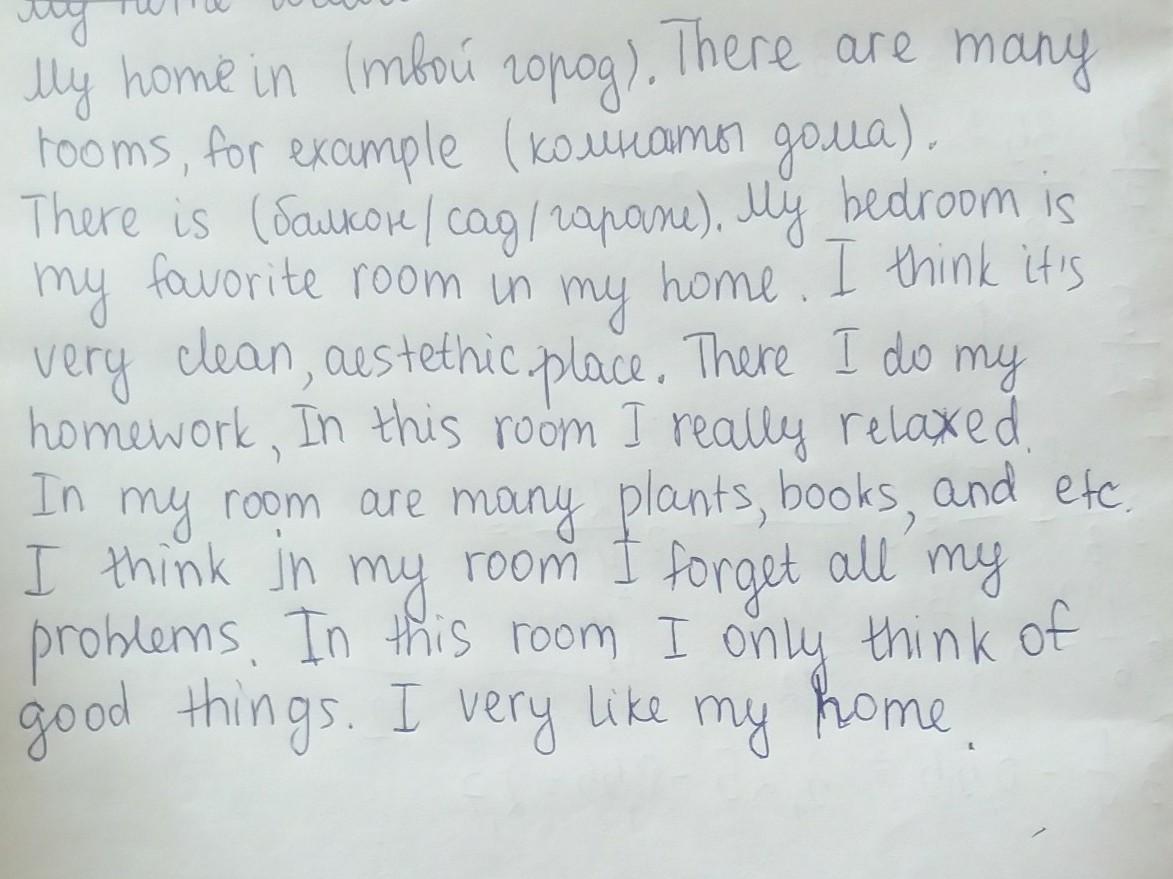 My home in (твой город). There are many
rooms, for example (комнаты дома).
There is (балкон/сад/гараж). My bedroom is
my favorite room in my home. I think it's
very clean, aestethic place. There I do my
homework, In this room I really relaxed.
In my room are many plants, books, and etc.
I think in my room I forget all my
problems. In this room I only think of
good things. I very like my home.